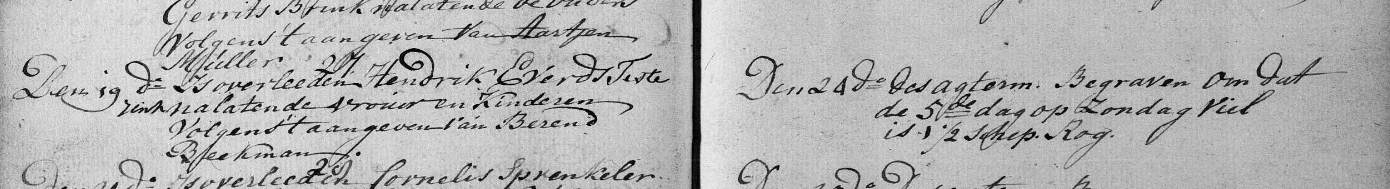 Gerrits Brink nalatende de ouders
Volgens 't aangeven van Aartjen
Muller.
Den 19 de Is overleeden Hendrik Everds Teste
rink nalatende vrouw en Kinderen
Volgens 't aangeven van Berend
Beekman.
Is overleeden Cornelis Sprenkeler
Den 24 de des agterm. Begraven om dat
de 5 de dag op Zondag Viel
is 1 1/2 Schep. Rog.